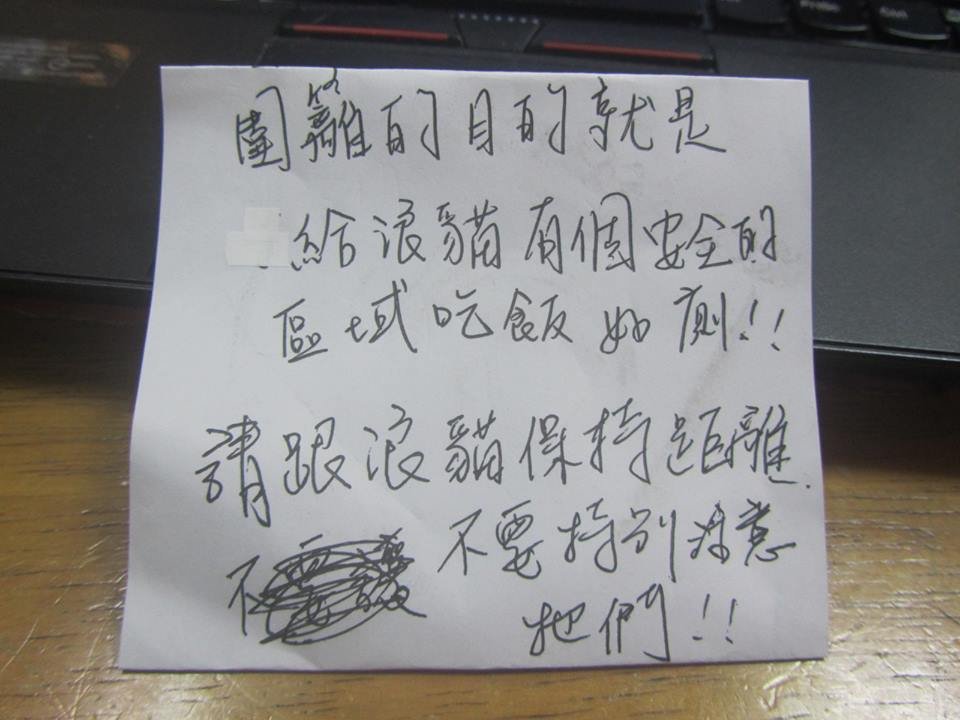 圍籬的目的就是
給浪貓有個安全的
區域吃飯如廁!!
請跟浪貓保持距離.
不 不要特別注意
牠們!!